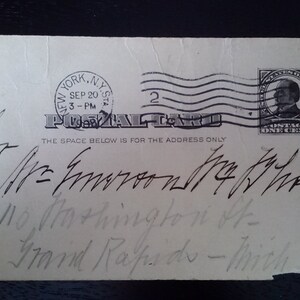 NEW YORK, N.Y. STA.
SEP 20
3-PM
2
POSTAL CARD
THE SPACE BELOW IS FOR THE ADDRESS ONLY
POSTAGE
ONE CENT
Mr. Emerson W.
Washington St.
Grand Rapids - Mich